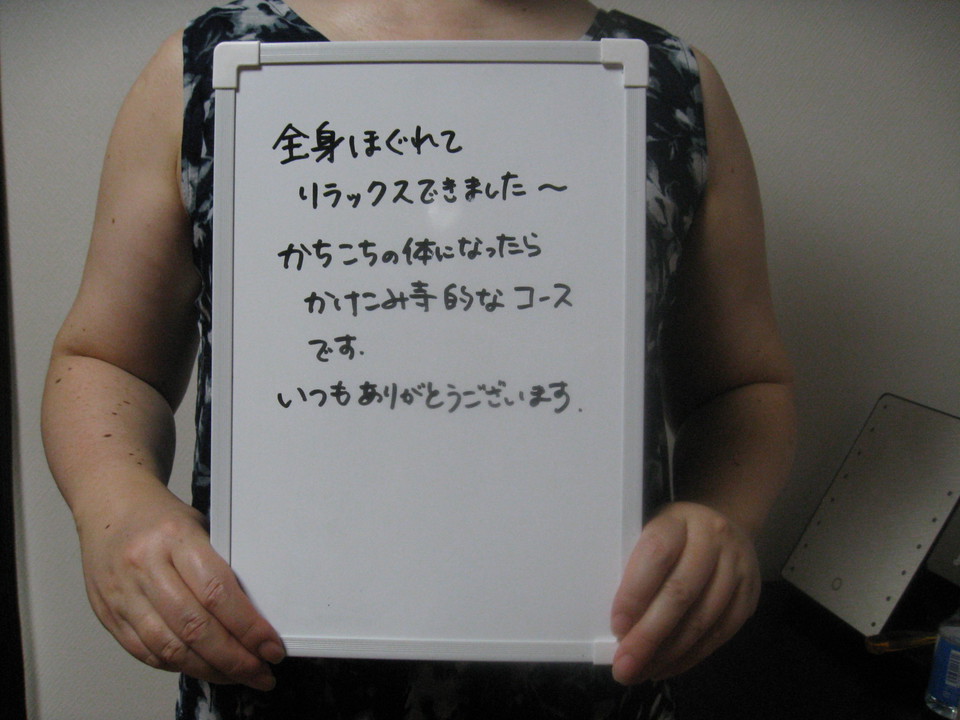 全身ほぐれて
リラックスできました～
かちこちの体になったら
かけこみ寺的なコース
です.
いつもありがとうございます.